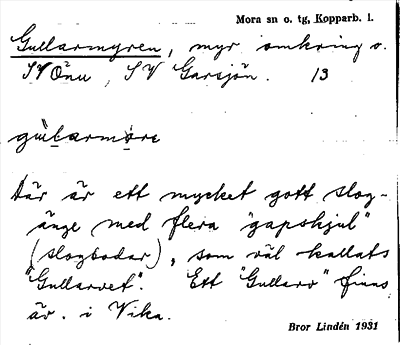 Mora sn o. tg, Kopparb. l.
Gullarmyren, myr omkring o.
SV Önu, SV Garsjön. 13
gularmöre
där är ett mycket gott slog-
änge med flera "gapskjul"
(slogbodar), som väl kallats
"Gullarvet". Ett "Gullarv" finns
äv. i Vika.
Bror Lindén 1931